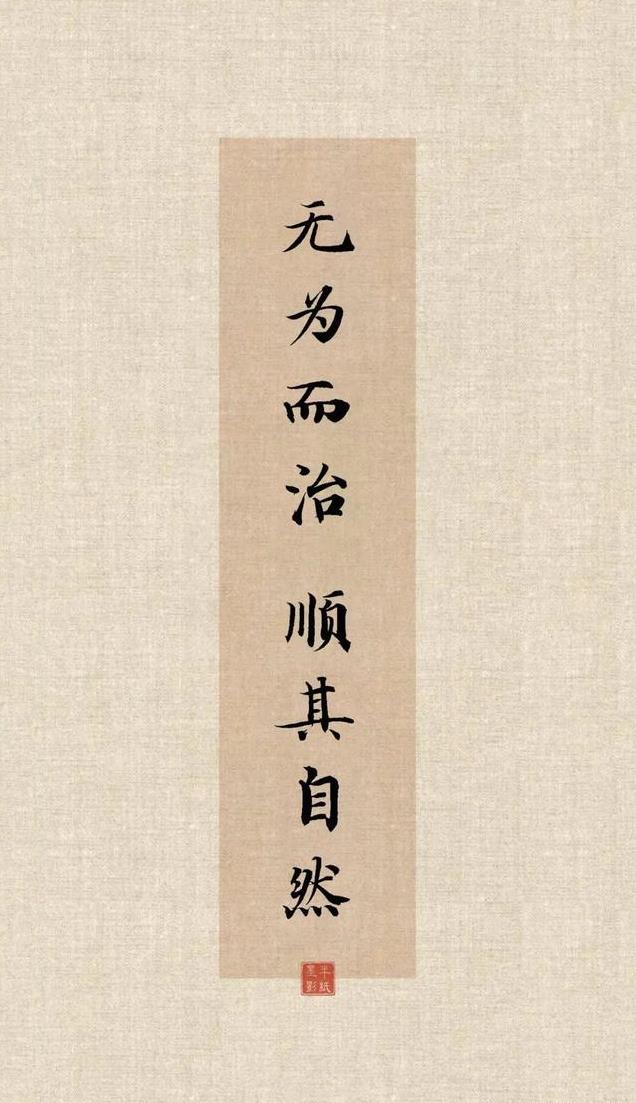 无为而治 顺其自然
半纸
墨影